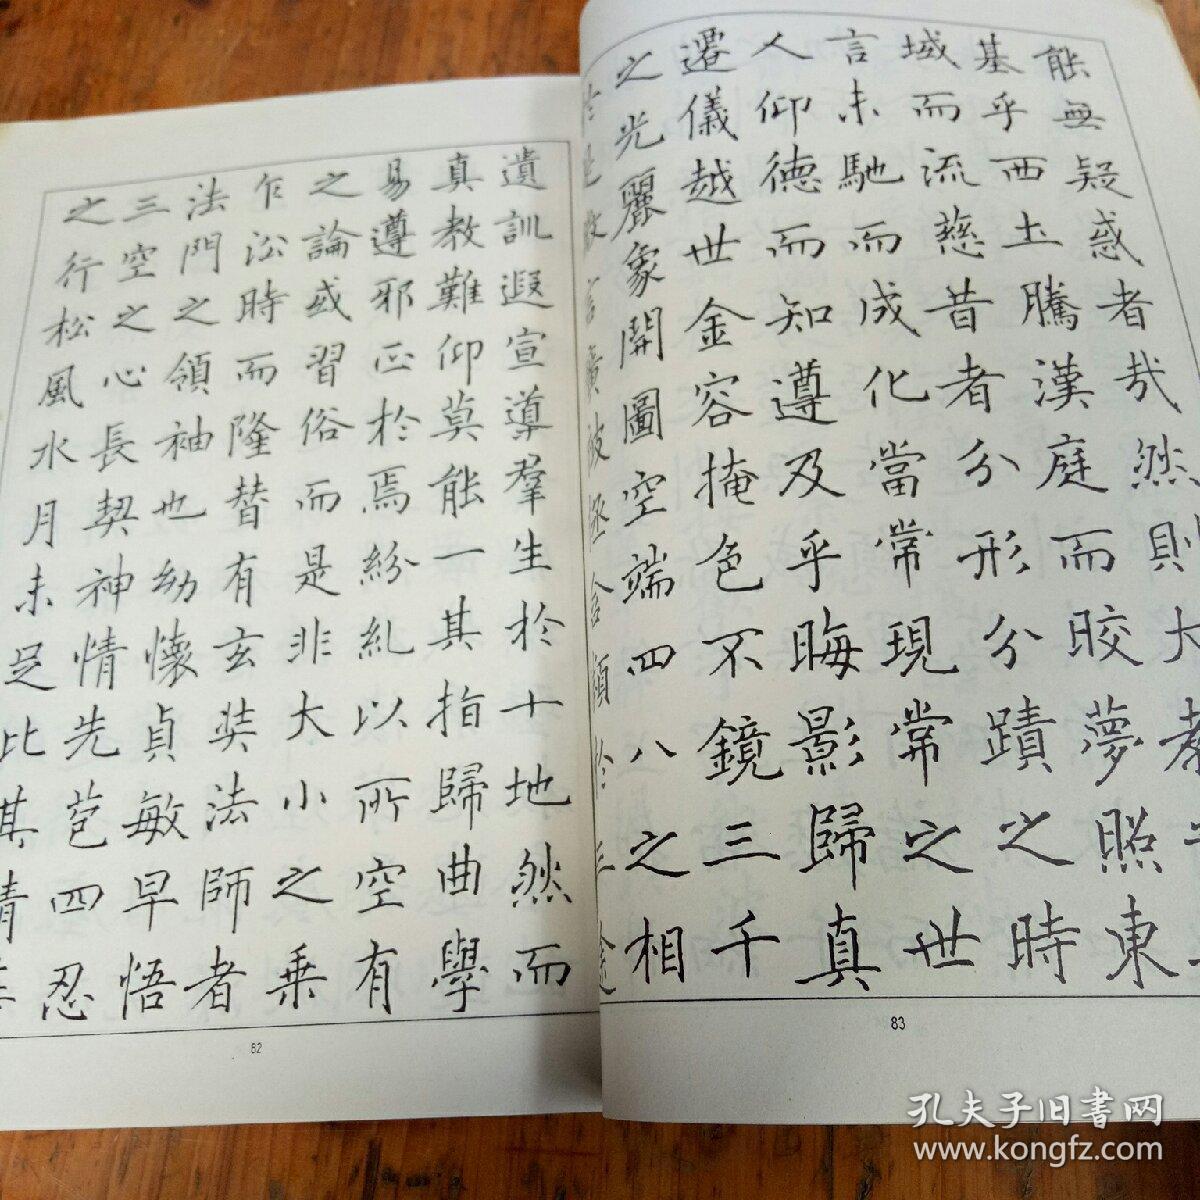 能無疑惑者哉然則大教
基乎西土騰漢庭而皎夢照東
域而流慈昔者分形分蹟之時
言未馳而成化當常現常之世
人仰德而知遵及乎晦影歸真
遷儀越世金容掩色不鏡三千
之光麗象開圖空端四八之相
於是微言廣被拯含類於三途
遺訓遐宣導羣生於十地然而
真教難仰莫能一其指歸曲學
易遵邪正於焉紛糺以所空有
之論或習俗而是非大小之乘
乍訟時而隆替有玄奘法師者
法門之領袖也幼懷貞敏早悟
三空之心長契神情先苞四忍
之行松風水月未足比其清華
82
83
孔夫子旧书网
www.kongfz.com